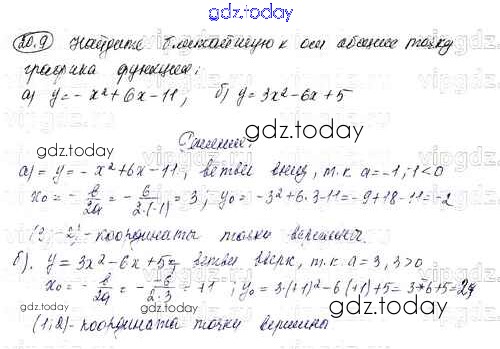 gdz.today
20.9 Найдите ближайшую к оси абсцисс точку
графика функции:
а) y = - x² + 6x - 11, б) y = 3x² - 6x + 5
gdz.today
Решение:
gdz.today
а) = y = - x² + 6x - 11, ветви вниз, т.к. a = -1, 1 < 0
x₀ = - b/2a = - 6/2·(-1) = 3; y₀ = -3² + 6·3 - 11 = -9 + 18 - 11 = -2
(3; -2) - координаты точки вершины.
б). y = 3x² - 6x + 5, ветви вверх, т.к. a = 3, 3 > 0
x₀ = - b/2a = - -6/2·3 = +1; y₀ = 3·(+1)² - 6(+1) + 5 = 3 - 6 + 5 = 2
(1; 2) - координата точки вершина
gdz.today